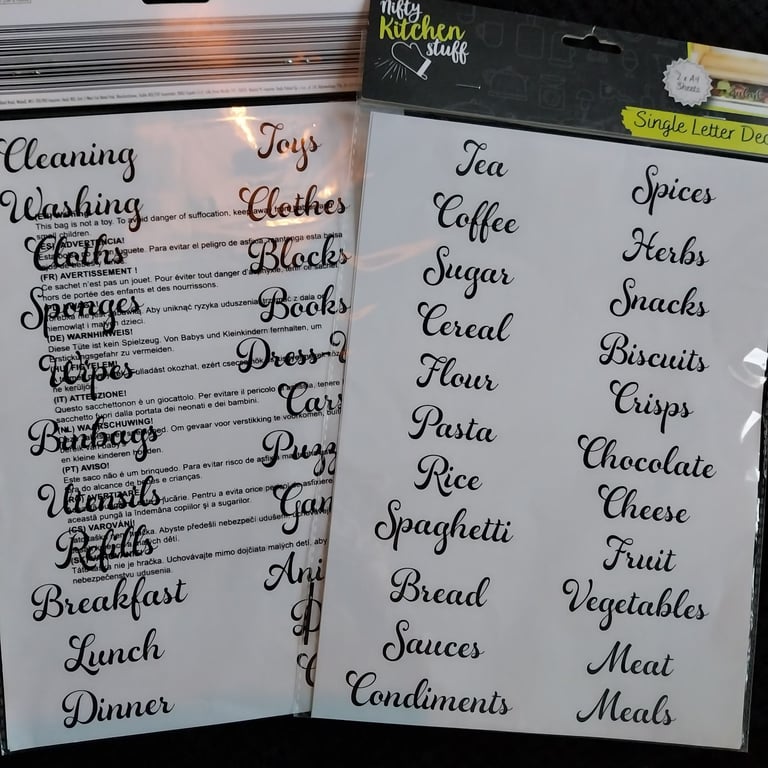 Cleaning
Washing
Cloths
Sponges
Wipes
Binbags
Utensils
Refills
Breakfast
Lunch
Dinner
Toys
Clothes
Blocks
Books
Dress
Cars
This bag is not a toy. To avoid danger of suffocation, keep away from
small children.
(ES) ADVERTENCIA!
Para evitar el peligro de asfixia, mantenga esta bolsa
(FR) AVERTISSEMENT !
Ce sachet n'est pas un jouet. Pour éviter tout danger d'asphyxie, tenir ce sachet
hors de portée des enfants et des nourrissons.
Aby uniknąć ryzyka uduszenia
niemowląt i małych dzieci.
(DE) WARNHINWEIS!
Diese Tüte ist kein Spielzeug. Von Babys und Kleinkindern fernhalten, um
Erstickungsgefahr zu vermeiden.
(IT) ATTENZIONE!
Questo sacchetto non è un giocattolo. Per evitare il pericolo
sacchetto fuori dalla portata dei neonati e dei bambini.
(NL) WAARSCHUWING!
Om gevaar voor verstikking te voorkomen,
en kleine kinderen houden.
(PT) AVISO!
Este saco não é um brinquedo. Para evitar risco de asfixia
do alcance de bebés e crianças.
Pentru a evita orice pericol de asfixiere
această pungă la îndemâna copiilor și a sugarilor.
(CS) VAROVÁNÍ
Abyste předešli nebezpečí udušení
dětí.
nie je hračka. Uchovávajte mimo dojčiata malých detí, aby
nebezpečenstvu udusenia.
Nifty
Kitchen
stuff
2 x A4
Sheets
Single Letter Dec
Tea
Coffee
Sugar
Cereal
Flour
Pasta
Rice
Spaghetti
Bread
Sauces
Condiments
Spices
Herbs
Snacks
Biscuits
Crisps
Chocolate
Cheese
Fruit
Vegetables
Meat
Meals